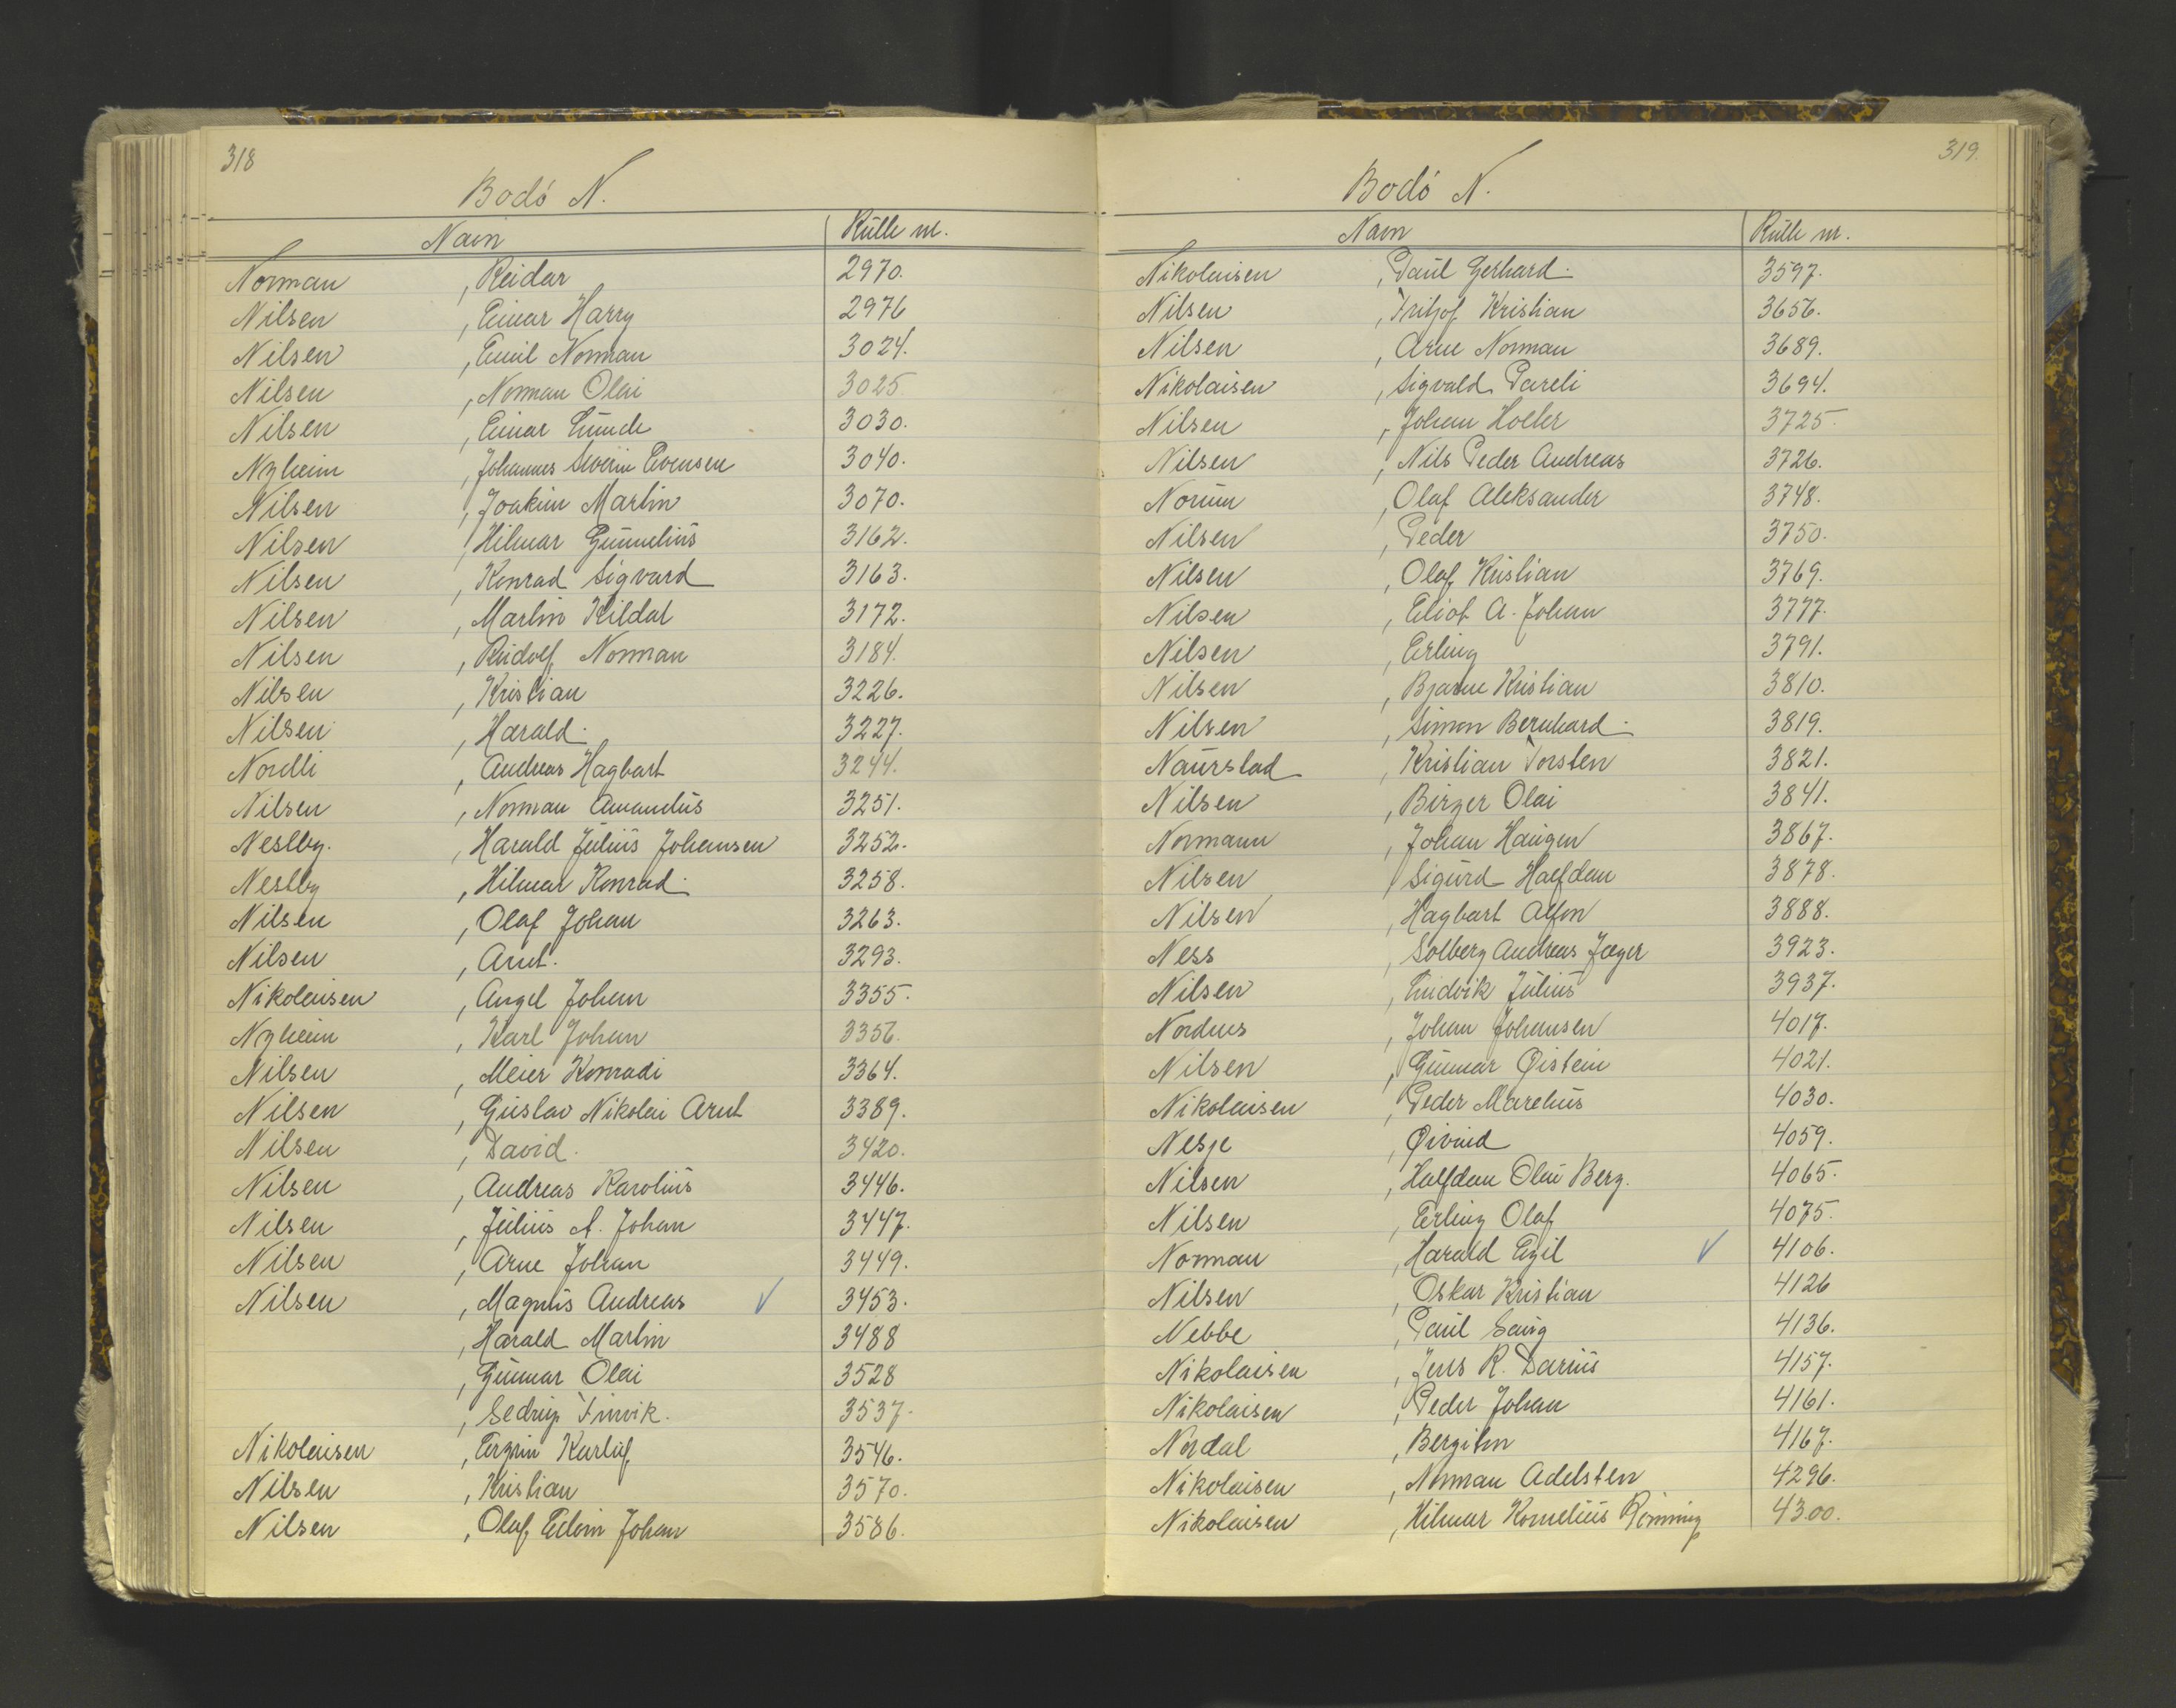 318
Bodö N.
Navn Rulle nr.
Norman , Reidar 2970.
Nilsen , Einar Harry 2976
Nilsen , Emil Norman 3024.
Nilsen , Norman Olai 3025
Nilsen , Einar Lunde 3030.
Nyheim , Johannes Severin Evensen 3040.
Nilsen , Joakim Martin 3070.
Nilsen , Hilmar Gunnelius 3162.
Nilsen , Konrad Sigvard 3163.
Nilsen , Martin Kildal 3172.
Nilsen , Rudolf Norman 3184.
Nilsen , Kristian 3226.
Nilsen , Harald. 3227.
Nordli , Andreas Hagbart 3244.
Nilsen , Norman Amandus 3251.
Nestby. , Harald Julius Johansen 3252.
Nestby , Hilmar Konrad. 3258.
Nilsen , Olaf Johan 3263.
Nilsen , Arnt. 3293.
Nikolaisen , Angel Johan 3355.
Nyheim , Karl Johan 3356.
Nilsen , Meier Konradi 3364.
Nilsen , Gustav Nikolai Arnt 3389.
Nilsen , David. 3420.
Nilsen , Andreas Karolius 3446.
Nilsen , Julius A. Johan 3447.
Nilsen , Arne Johan 3449.
Nilsen , Magnus Andreas ✓ 3453.
, Harald Martin 3488
, Gunnar Olai 3528
, Finvik. 3537.
Nikolaisen , Karluf 3546.
Nilsen , Kristian 3570.
Nilsen , Olaf Edvin Johan 3586.
319.
Bodö N.
Navn Rulle nr.
Nikolaisen , Paul Gerhard. 3597.
Nilsen , Fritjof Kristian 3656.
Nilsen , Arne Norman 3689.
Nikolaisen , Sigvald Pareli 3694.
Nilsen , Johan Holter 3725.
Nilsen , Nils Peder Andreas 3726.
Norum , Olaf Aleksander 3748.
Nilsen , Peder 3750.
Nilsen , Olaf Kristian 3769.
Nilsen , Eliot A. Johan 3777.
Nilsen , Erling 3791.
Nilsen , Bjarne Kristian 3810.
Nilsen , Simon Bernhard. 3819.
Naurstad , Kristian Torsten 3821.
Nilsen , Birger Olai 3841.
Normann , Johan Haugen 3867.
Nilsen , Sigurd Halfdan 3878.
Nilsen , Hagbart Alfon 3888.
Ness , Solberg Andreas Jæger 3923.
Nilsen , Ludvik Julius 3937.
Nordnes , Johan Johansen 4017.
Nilsen , Gunnar Øistein 4021.
Nikolaisen , Peder Marelius 4030.
Nesje , Øivind 4059.
Nilsen , Halfdan Olai Berg. 4065.
Nilsen , Erling Olaf 4075.
Norman , Harald Egil ✓ 4106.
Nilsen , Oskar Kristian 4126
Nebbe , Paul 4136.
Nikolaisen , Jens R. Darius 4157.
Nikolaisen , Peder Johan 4161.
Nordal , Bergiton 4167.
Nikolaisen , Norman Adelsten 4296.
Nikolaisen , Hilmar Kornelius Rönning 4300.